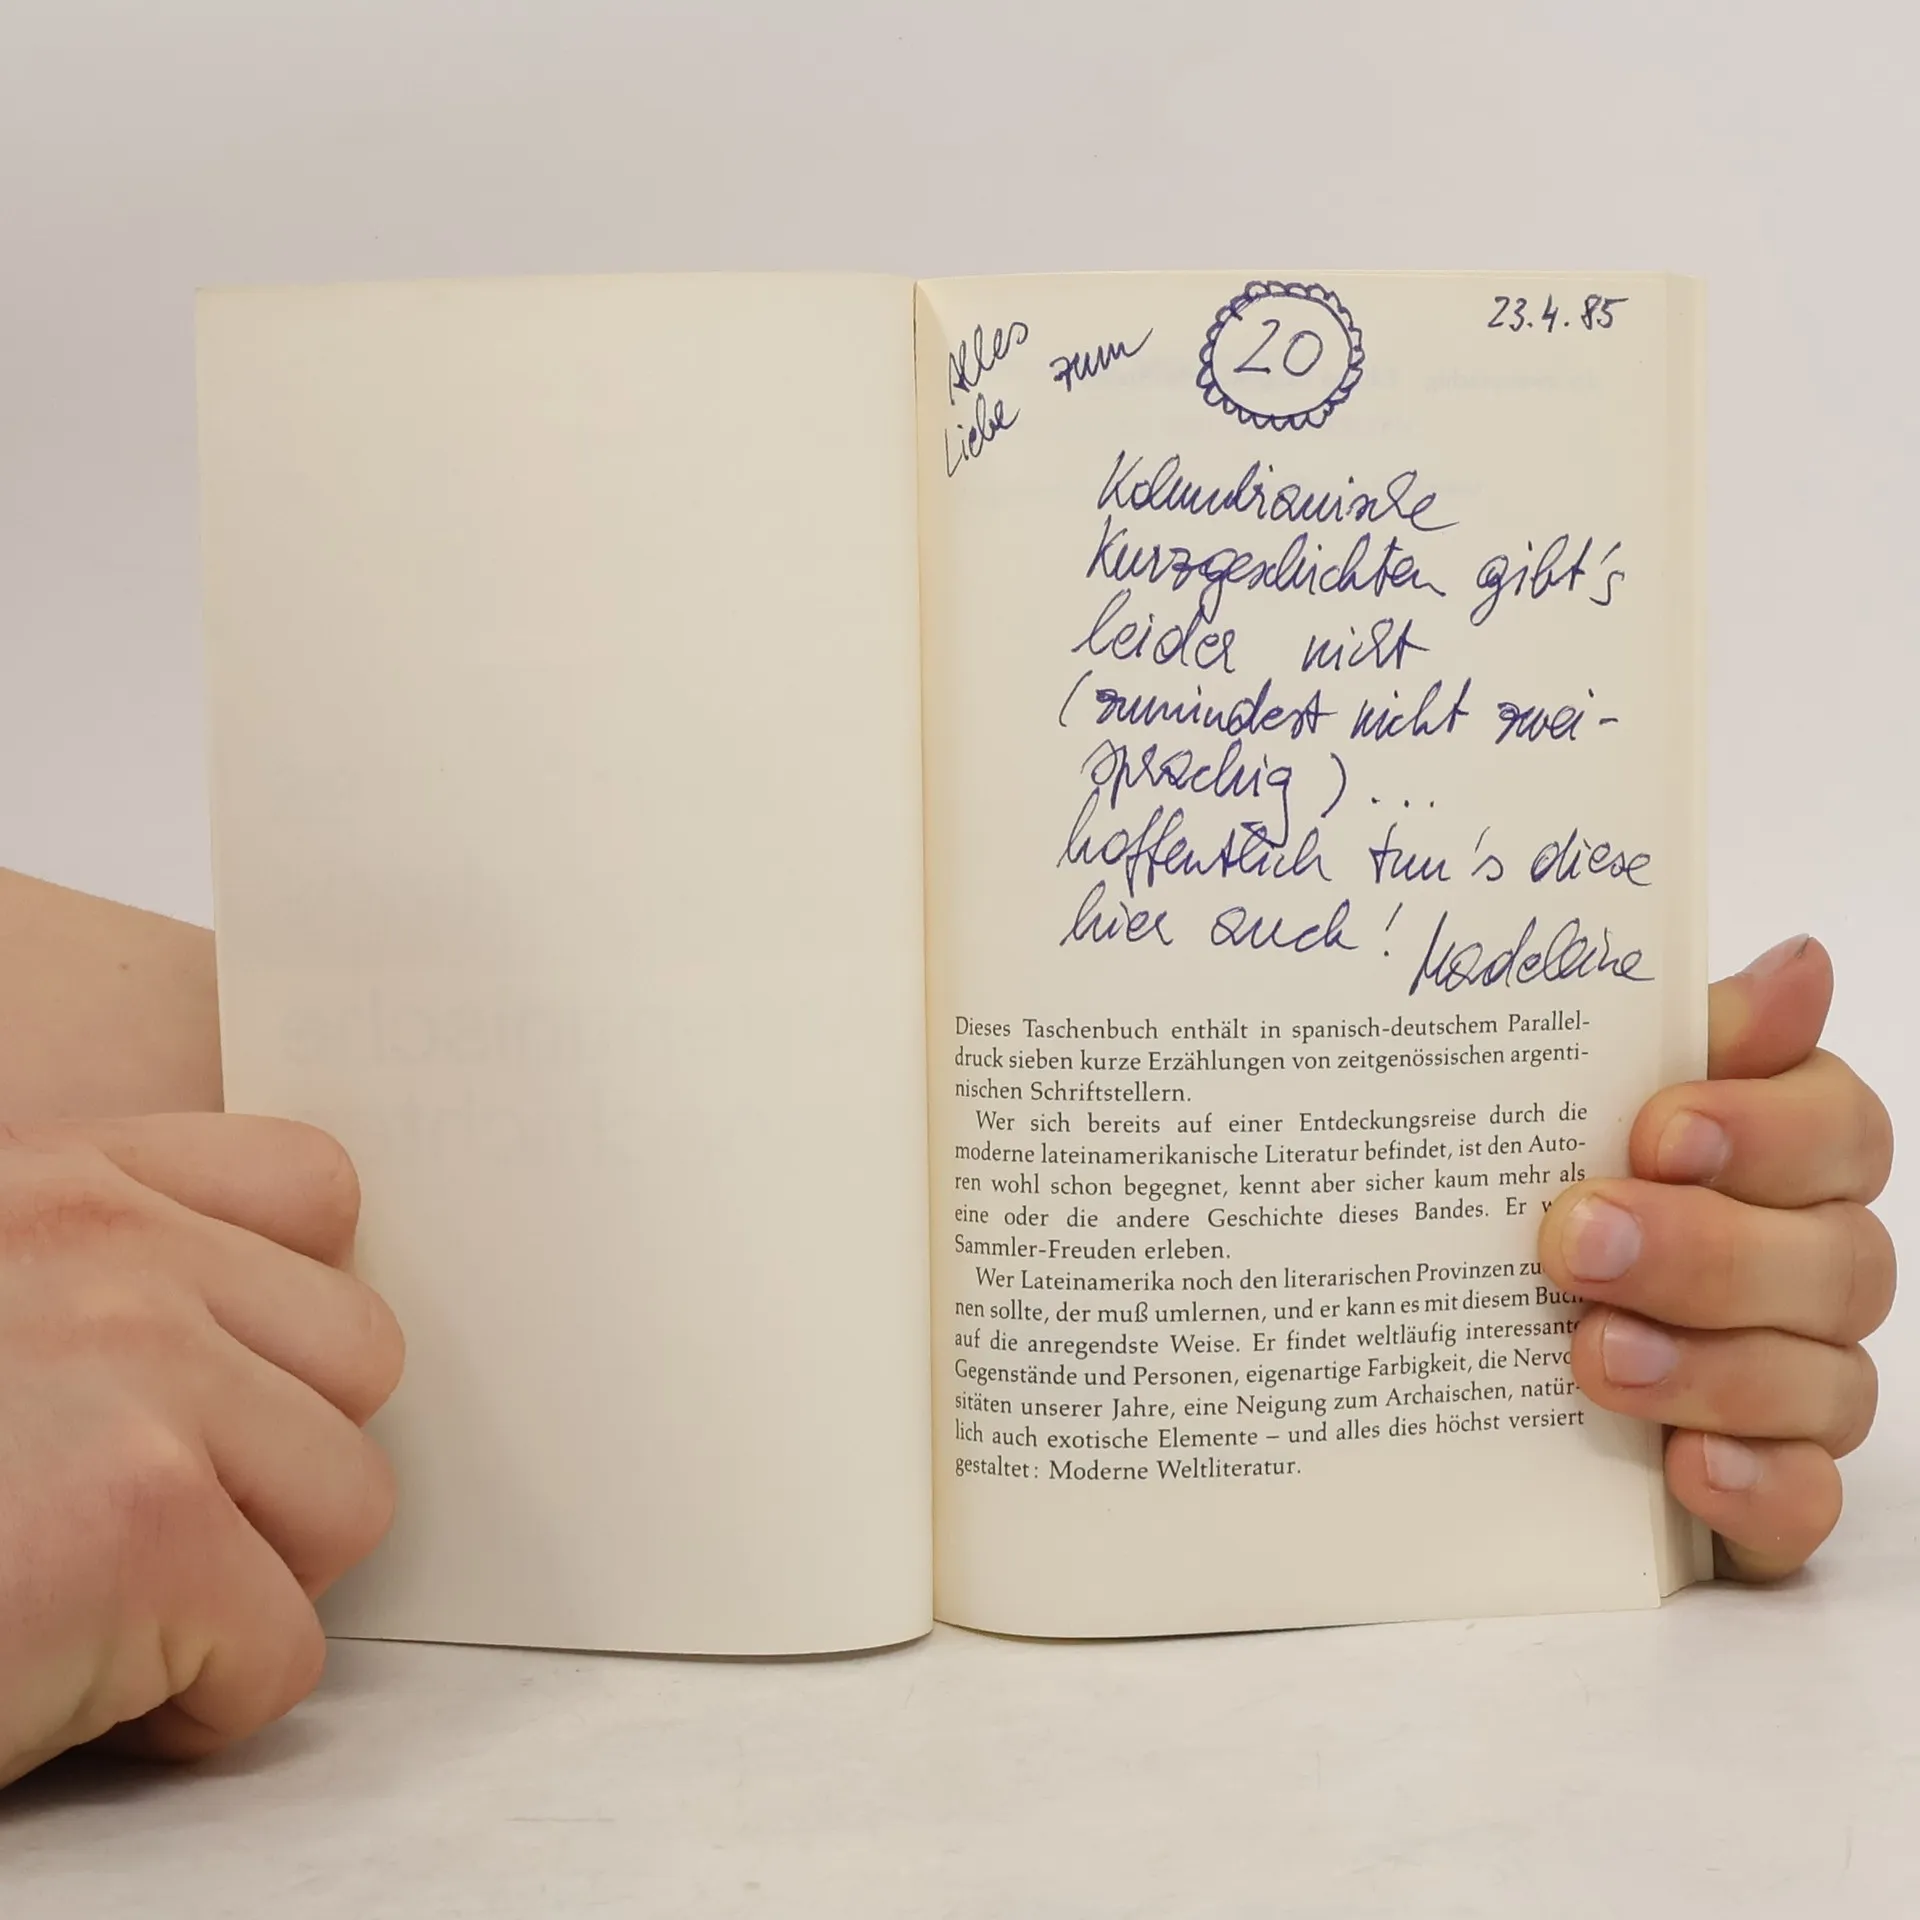 23.4.85
Alles
Liebe zum 20
Kolumbianische
Kurzgeschichten gibt's
leider nicht
(zumindest nicht zwei-
sprachig) ...
hoffentlich tun's diese
hier auch! Madeleine
Dieses Taschenbuch enthält in spanisch-deutschem Parallel-
druck sieben kurze Erzählungen von zeitgenössischen argenti-
nischen Schriftstellern.
Wer sich bereits auf einer Entdeckungsreise durch die
moderne lateinamerikanische Literatur befindet, ist den Auto-
ren wohl schon begegnet, kennt aber sicher kaum mehr als
eine oder die andere Geschichte dieses Bandes. Er
Sammler-Freuden erleben.
Wer Lateinamerika noch den literarischen Provinzen
nen sollte, der muß umlernen, und er kann es mit diesem Buch
auf die anregendste Weise. Er findet weltläufig interessante
Gegenstände und Personen, eigenartige Farbigkeit, die Nervo-
sitäten unserer Jahre, eine Neigung zum Archaischen, natür-
lich auch exotische Elemente – und alles dies höchst versiert
gestaltet: Moderne Weltliteratur.